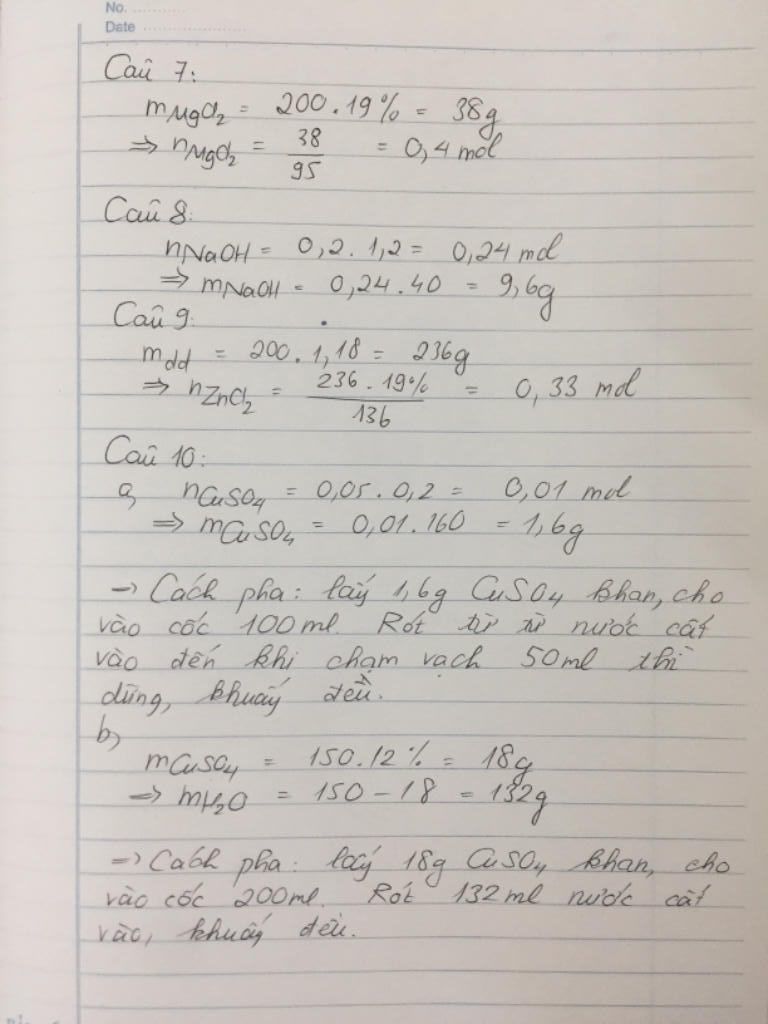 No. ............
Date ........................
Câu 7:
mMgCl2 = 200.19% = 38g
=> nMgCl2 = 38/95 = 0,4 mol
Câu 8:
nNaOH = 0,2.1,2 = 0,24 mol
=> mNaOH = 0,24.40 = 9,6g
Câu 9:
mdd = 200.1,18 = 236g
=> nZnCl2 = 236.19%/136 = 0,33 mol
Câu 10:
a, nCuSO4 = 0,05.0,2 = 0,01 mol
=> mCuSO4 = 0,01.160 = 1,6g
-> Cách pha: lấy 1,6g CuSO4 khan, cho
vào cốc 100ml. Rót từ từ nước cất
vào đến khi chạm vạch 50ml thì
dừng, khuấy đều.
b,
mCuSO4 = 150.12% = 18g
=> mH2O = 150 - 18 = 132g
=> Cách pha: lấy 18g CuSO4 khan, cho
vào cốc 200ml. Rót 132ml nước cất
vào, khuấy đều.